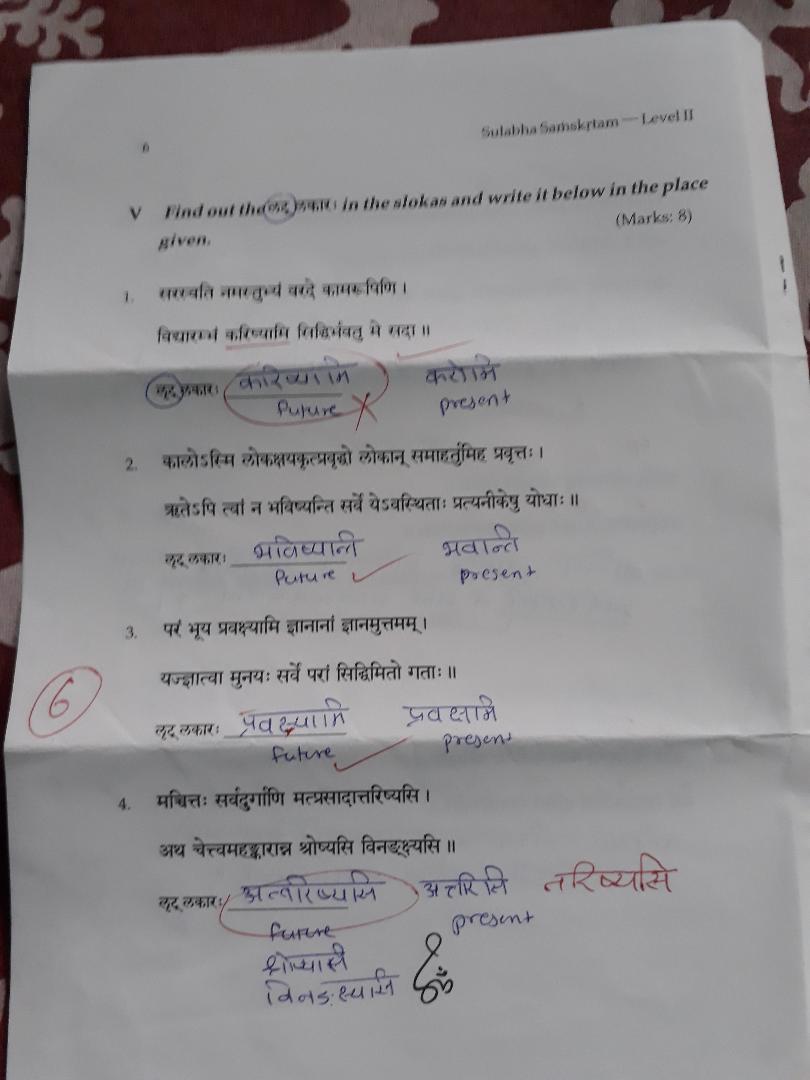 6
Sulabha Samskṛtam — Level II
V Find out the लृट् लकारः in the slokas and write it below in the place
(Marks: 8)
given.
1. सरस्वति नमस्तुभ्यं वरदे कामरूपिणि ।
विद्यारम्भं करिष्यामि सिद्धिर्भवतु मे सदा ॥
लृट् लकारः करिष्यामि करोमि
future present
2. कालोऽस्मि लोकक्षयकृत्प्रवृद्धो लोकान् समाहर्तुमिह प्रवृत्तः ।
ऋतेऽपि त्वां न भविष्यन्ति सर्वे येऽवस्थिताः प्रत्यनीकेषु योधाः ॥
लृट् लकारः भविष्यन्ति भवान्ति
future present
3. परं भूय प्रवक्ष्यामि ज्ञानानां ज्ञानमुत्तमम् ।
यज्ज्ञात्वा मुनयः सर्वे परां सिद्धिमितो गताः ॥
6
लृट् लकारः प्रवक्ष्यामि प्रवक्षामि
future present
4. मच्चित्तः सर्वदुर्गाणि मत्प्रसादात्तरिष्यसि ।
अथ चेत्त्वमहङ्कारान्न श्रोष्यसि विनङ्क्ष्यसि ॥
लृट् लकारः अत्तरिष्यसि अत्तरिसि तरिष्यसि
future present
श्रोष्यसि
ॐ